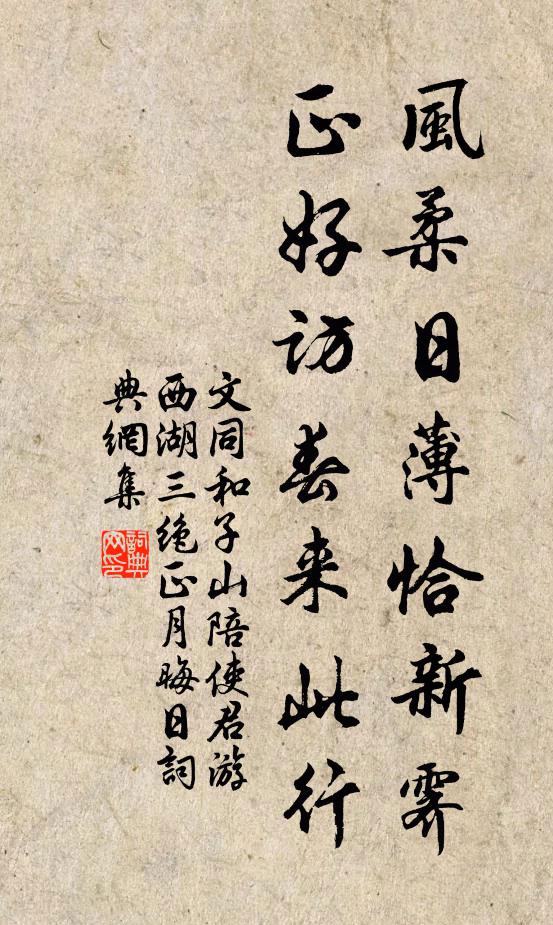 風柔日薄恰新霽
正好訪春来此行
文同和子山陪使君游
西湖三绝正月晦日詞
典網集
詞典
网印